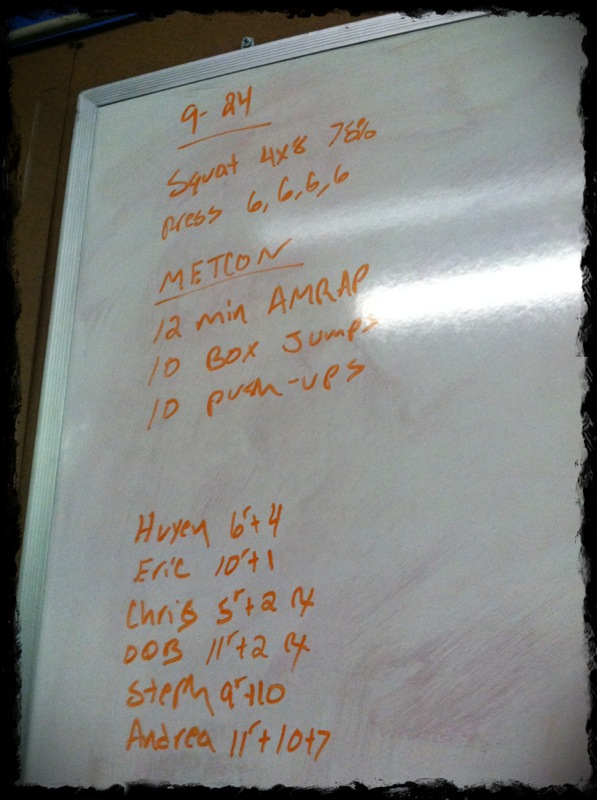 9-24
Squat 4x8 78%
press 6, 6, 6, 6
METCON
12 min AMRAP
10 BOX Jumps
10 push-ups
Huyen 6r+4
Eric 10r+1
Chris 5r+2 Rx
DOB 11r+2 Rx
Steph 9r+10
Andrea 11r+10+7